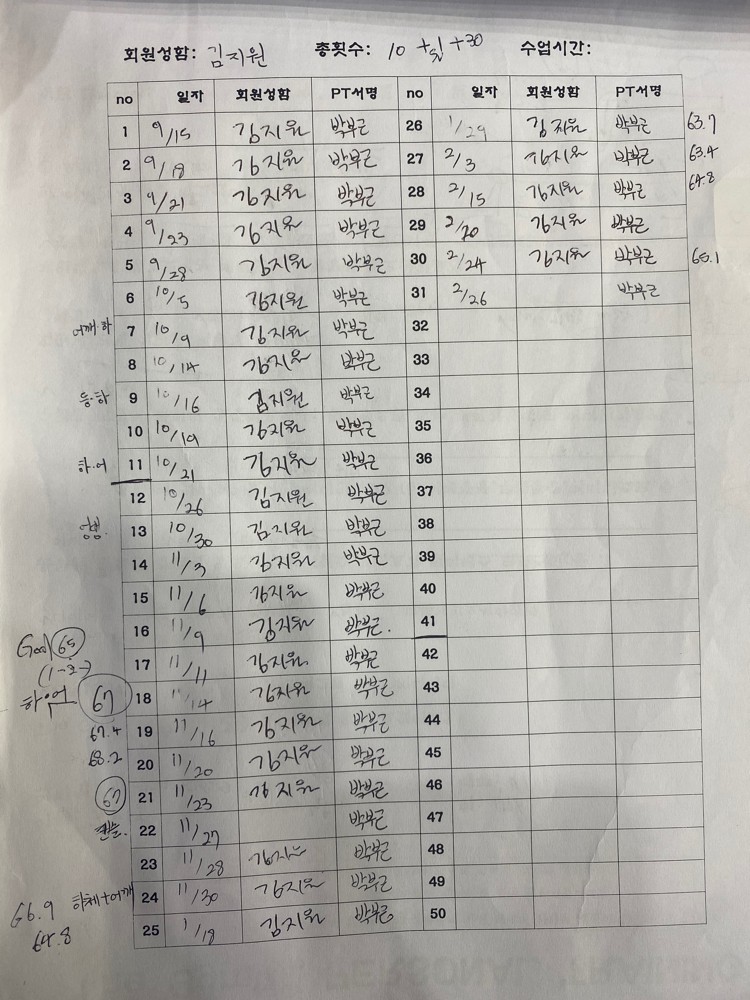 회원성함: 김지원 총횟수: 10 + +30 수업시간:
no 일자 회원성함 PT서명 no 일자 회원성함 PT서명
1 9/15 김지원 박부근 26 1/29 김지원 박부근 63.7
2 9/18 김지원 박부근 27 2/3 김지원 박부근 63.4
3 9/21 김지원 박부근 28 2/15 김지원 박부근 64.8
4 9/23 김지원 박부근 29 2/20 김지원 박부근
5 9/28 김지원 박부근 30 2/24 김지원 박부근 65.1
6 10/5 김지원 박부근 31 2/26 박부근
어깨·하 7 10/9 김지원 박부근 32
8 10/14 김지원 박부근 33
등·하 9 10/16 김지원 박부근 34
10 10/19 김지원 박부근 35
하·어 11 10/21 김지원 박부근 36
12 10/26 김지원 박부근 37
13 10/30 김지원 박부근 38
14 11/3 김지원 박부근 39
15 11/6 김지원 박부근 40
16 11/9 김지원 박부근. 41
Goal 65
17 11/11 김지원 박부근 42
67 18 11/14 김지원 박부근 43
67.4 19 11/16 김지원 박부근 44
68.2 20 11/20 김지원 박부근 45
67 21 11/23 김지원 박부근 46
캔슬. 22 11/27 박부근 47
23 11/28 김지원 박부근 48
66.9 하체+어깨 24 11/30 김지원 박부근 49
64.8 25 1/18 김지원 박부근 50